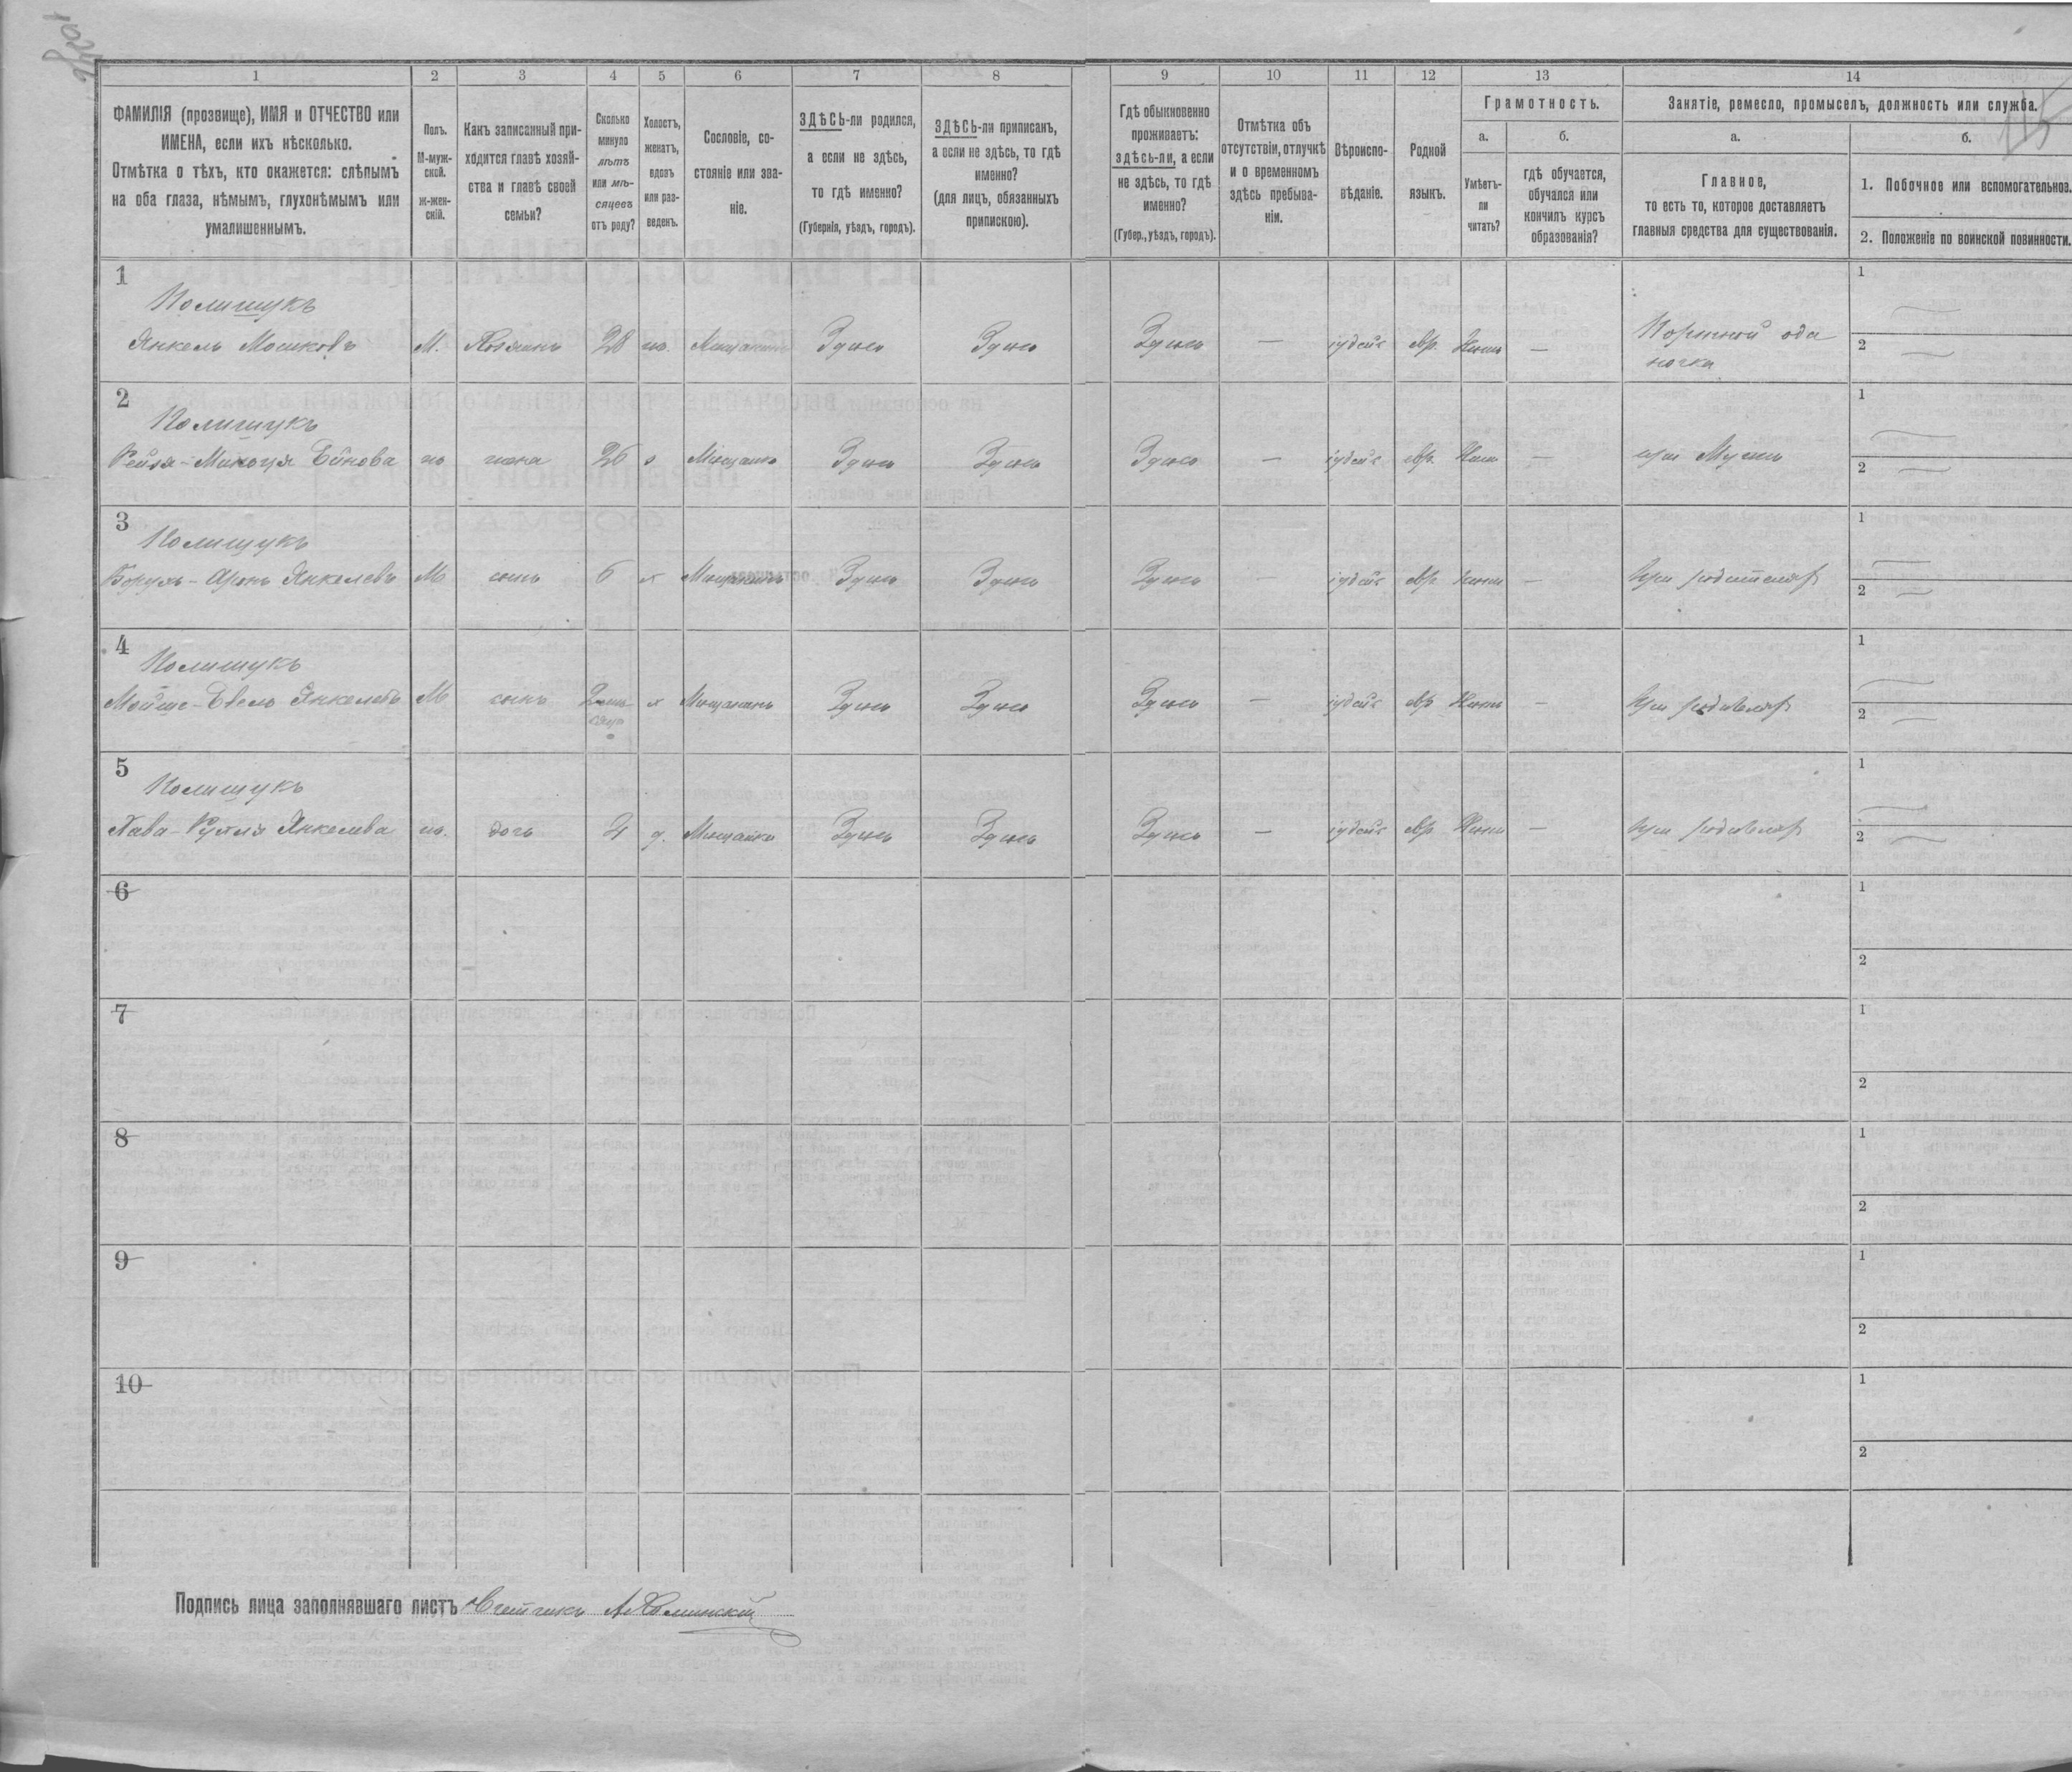 1 2 3 4 5 6 7 8 9 10 11 12 13 14
ФАМИЛІЯ (прозвище), ИМЯ и ОТЧЕСТВО или
ИМЕНА, если ихъ нѣсколько.
Отмѣтка о тѣхъ, кто окажется: слѣпымъ
на оба глаза, нѣмымъ, глухонѣмымъ или
умалишеннымъ.
Полъ.
М-муж-
ской.
Ж-жен-
скій.
Какъ записанный при-
ходится главѣ хозяй-
ства и главѣ своей
семьи?
Сколько
минуло
лѣтъ
или мѣ-
сяцевъ
отъ роду?
Холостъ,
женатъ,
вдовъ
или раз-
веденъ.
Сословіе, со-
стояніе или зва-
ніе.
ЗДѢСЬ-ли родился,
а если не здѣсь,
то гдѣ именно?
(Губернія, уѣздъ, городъ).
ЗДѢСЬ-ли приписанъ,
а если не здѣсь, то гдѣ
именно?
(для лицъ, обязанныхъ
припискою).
Гдѣ обыкновенно
проживаетъ:
здѣсь-ли, а если
не здѣсь, то гдѣ
именно?
(Губер., уѣздъ, городъ).
Отмѣтка объ
отсутствіи, отлучкѣ
и о временномъ
здѣсь пребыва-
ніи.
Вѣроиспо-
вѣданіе.
Родной
языкъ.
Грамотность.
а.
Умѣетъ-
ли
читать?
б.
гдѣ обучается,
обучался или
кончилъ курсъ
образованія?
Занятіе, ремесло, промыселъ, должность или служба.
а.
Главное,
то есть то, которое доставляетъ
главныя средства для существованія.
б.
1. Побочное или вспомогательное.
2. Положеніе по воинской повинности.
115
1
Полищукъ
Янкель Мошковъ М. Хозяинъ 28 ж. Мѣщанинъ Здѣсь Здѣсь Здѣсь — іудейс евр. — Портной оди
ночка
1
2
2
Полищукъ
жена 26 з Мѣщанка Здѣсь Здѣсь Здѣсь — іудейс евр. — при Мужѣ
1
2
3
Полищукъ
Борухъ-Аронъ Янкелевъ М сынъ 6 х Мѣщанинъ Здѣсь Здѣсь Здѣсь — іудейс евр. — при родителяхъ
1
2
4
Полищукъ
М сынъ 2 мѣ-
сяца х Мѣщанинъ Здѣсь Здѣсь Здѣсь — іудейс евр — при
1
2
5
Полищукъ
Хава-Рухля Янкелева ж. дочь 4 д. Мѣщанка Здѣсь Здѣсь Здѣсь — іудейс евр — при
1
2
6
1
2
7
1
2
8
1
2
9
1
2
10
1
2
Подпись лица заполнявшаго листъ Счетчикъ